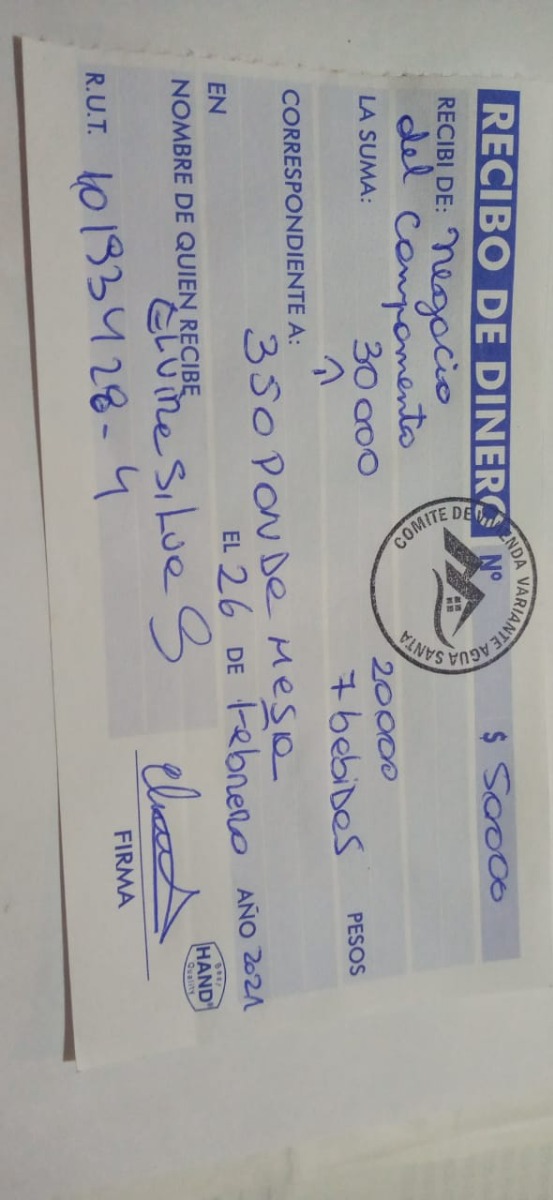 RECIBO DE DINERO Nº $ 50000
RECIBI DE: negocio
del campamento
20000
LA SUMA: 30000 7 bebidas PESOS
CORRESPONDIENTE A:
350 PON DE MESA
EN EL 26 DE Febrero AÑO 2021
NOMBRE DE QUIEN RECIBE
SILVA S
R.U.T. 10193428-4
FIRMA
HAND
Best Quality
COMITE DE VIVIENDA VARIANTE AGUA SANTA